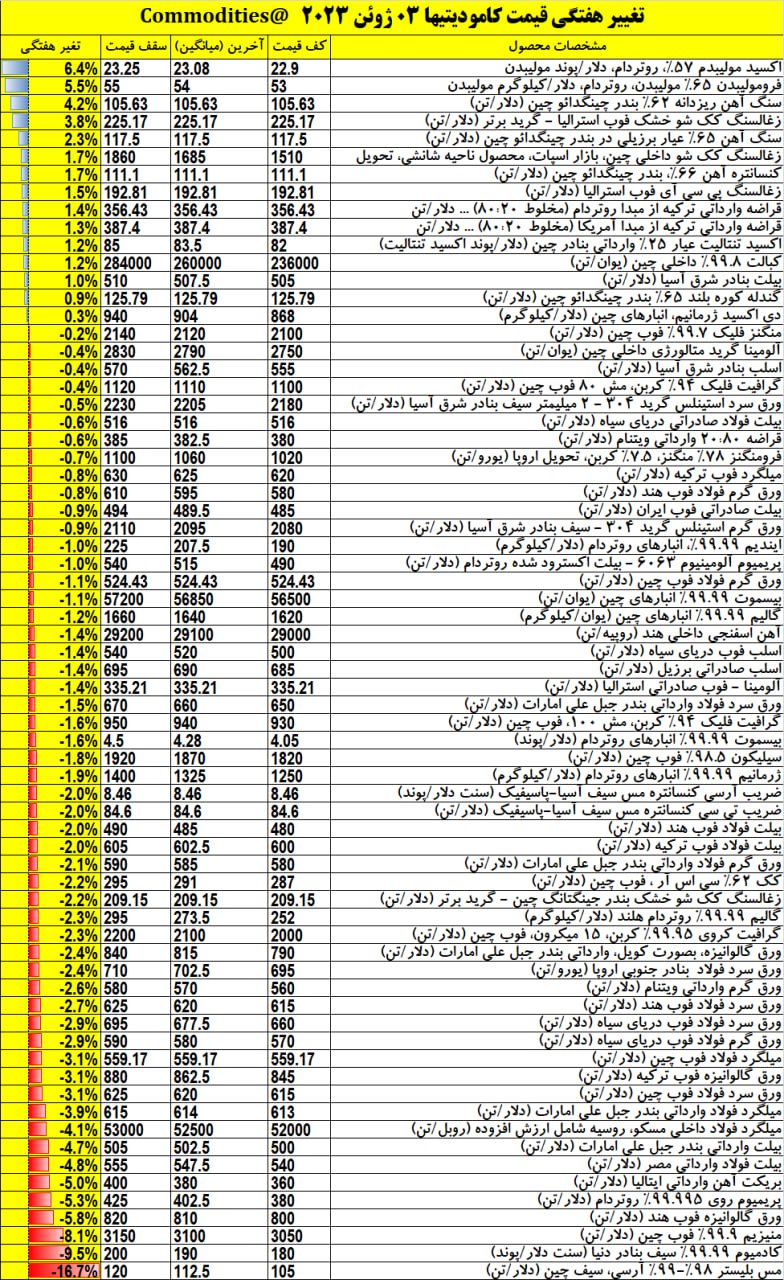 تغییر هفتگی قیمت کامودیتیها ۰۳ ژوئن ۲۰۲۳ @Commodities
مشخصات محصول | کف قیمت | آخرین (میانگین) | سقف قیمت | تغیر هفتگی
اکسید مولیبدم ۵۷٪، روتردام، دلار/پوند مولیبدن 22.9 23.08 23.25 6.4%
فرومولیبدن ۶۵٪ مولیبدن، روتردام، دلار/کیلوگرم مولیبدن 53 54 55 5.5%
سنگ آهن ریزدانه ۶۲٪ بندر چینگدائو چین (دلار/تن) 105.63 105.63 105.63 4.2%
زغالسنگ کک شو خشک فوب استرالیا - گرید برتر (دلار/تن) 225.17 225.17 225.17 3.8%
سنگ آهن ۶۵٪ عیار برزیلی در بندر چینگدائو چین (دلار/تن) 117.5 117.5 117.5 2.3%
زغالسنگ کک شو داخلی چین، بازار اسپات، محصول ناحیه شانشی، تحویل 1510 1685 1860 1.7%
کنسانتره آهن ۶۶٪، بندر چینگدائو چین (دلار/تن) 111.1 111.1 111.1 1.7%
زغالسنگ پی سی آی فوب استرالیا (دلار/تن) 192.81 192.81 192.81 1.5%
قراضه وارداتی ترکیه از مبدا روتردام (مخلوط ۸۰:۲۰) ... دلار/تن 356.43 356.43 356.43 1.4%
قراضه وارداتی ترکیه از مبدا آمریکا (مخلوط ۸۰:۲۰) ... دلار/تن 387.4 387.4 387.4 1.3%
اکسید تنتالیت عیار ۲۵٪ وارداتی بنادر چین (دلار/پوند اکسید تنتالیت) 82 83.5 85 1.2%
کبالت ۹۹.۸٪ داخلی چین (یوان/تن) 236000 260000 284000 1.2%
بیلت بنادر شرق آسیا (دلار/تن) 505 507.5 510 1.0%
گندله کوره بلند ۶۵٪ بندر چینگدائو چین (دلار/تن) 125.79 125.79 125.79 0.9%
دی اکسید ژرمانیم، انبارهای چین (دلار/کیلوگرم) 868 904 940 0.3%
منگنز فلیک ۹۹.۷٪ فوب چین (دلار/تن) 2100 2120 2140 -0.2%
آلومینا گرید متالورژی داخلی چین (یوان/تن) 2750 2790 2830 -0.4%
اسلب بنادر شرق آسیا (دلار/تن) 555 562.5 570 -0.4%
گرافیت فلیک ۹۴٪ کربن، مش ۸۰ فوب چین (دلار/تن) 1100 1110 1120 -0.4%
ورق سرد استینلس گرید ۳۰۴ - ۲ میلیمتر سیف بنادر شرق آسیا (دلار/تن) 2180 2205 2230 -0.5%
بیلت فولاد صادراتی دریای سیاه (دلار/تن) 516 516 516 -0.6%
قراضه ۲۰:۸۰ وارداتی ویتنام (دلار/تن) 380 382.5 385 -0.6%
فرومنگنز ۷۸٪ منگنز، ۷.۵٪ کربن، تحویل اروپا (یورو/تن) 1020 1060 1100 -0.7%
میلگرد فوب ترکیه (دلار/تن) 620 625 630 -0.8%
ورق گرم فولاد فوب هند (دلار/تن) 580 595 610 -0.8%
بیلت صادراتی فوب ایران (دلار/تن) 485 489.5 494 -0.9%
ورق گرم استینلس گرید ۳۰۴ - سیف بنادر شرق آسیا (دلار/تن) 2080 2095 2110 -0.9%
ایندیم ۹۹.۹۹٪، انبارهای روتردام (دلار/کیلوگرم) 190 207.5 225 -1.0%
پریمیوم آلومینیوم ۶۰۶۳ - بیلت اکسترود شده روتردام (دلار/تن) 490 515 540 -1.0%
ورق گرم فولاد فوب چین (دلار/تن) 524.43 524.43 524.43 -1.1%
بیسموت ۹۹.۹۹٪ انبارهای چین (یوان/تن) 56500 56850 57200 -1.1%
گالیم ۹۹.۹۹٪ انبارهای چین (یوان/کیلوگرم) 1620 1640 1660 -1.2%
آهن اسفنجی داخلی هند (روپیه/تن) 29000 29100 29200 -1.4%
اسلب فوب دریای سیاه (دلار/تن) 500 520 540 -1.4%
اسلب صادراتی برزیل (دلار/تن) 685 690 695 -1.4%
آلومینا - فوب صادراتی استرالیا (دلار/تن) 335.21 335.21 335.21 -1.4%
ورق سرد فولاد وارداتی بندر جبل علی امارات (دلار/تن) 650 660 670 -1.5%
گرافیت فلیک ۹۴٪ کربن، مش ۱۰۰، فوب چین (دلار/تن) 930 940 950 -1.6%
بیسموت ۹۹.۹۹٪ انبارهای روتردام (دلار/پوند) 4.05 4.28 4.5 -1.6%
سیلیکون ۹۸.۵٪ فوب چین (دلار/تن) 1820 1870 1920 -1.8%
ژرمانیم ۹۹.۹۹٪ انبارهای روتردام (دلار/کیلوگرم) 1250 1325 1400 -1.9%
ضریب آرسی کنسانتره مس سیف آسیا-پاسیفیک (سنت دلار/پوند) 8.46 8.46 8.46 -2.0%
ضریب تی سی کنسانتره مس سیف آسیا-پاسیفیک (دلار/تن) 84.6 84.6 84.6 -2.0%
بیلت فولاد فوب هند (دلار/تن) 480 485 490 -2.0%
بیلت فولاد فوب ترکیه (دلار/تن) 600 602.5 605 -2.0%
ورق گرم فولاد وارداتی بندر جبل علی امارات (دلار/تن) 580 585 590 -2.1%
کک ۶۲٪ سی اس آر ، فوب چین (دلار/تن) 287 291 295 -2.2%
زغالسنگ کک شو خشک بندر جینگتانگ چین - گرید برتر (دلار/تن) 209.15 209.15 209.15 -2.2%
گالیم ۹۹.۹۹٪ روتردام هلند (دلار/کیلوگرم) 252 273.5 295 -2.3%
گرافیت کروی ۹۹.۹۵٪ کربن، ۱۵ میکرون، فوب چین (دلار/تن) 2000 2100 2200 -2.3%
ورق گالوانیزه، بصورت کویل، وارداتی بندر جبل علی امارات (دلار/تن) 790 815 840 -2.4%
ورق سرد فولاد بنادر جنوبی اروپا (یورو/تن) 695 702.5 710 -2.4%
ورق گرم وارداتی ویتنام (دلار/تن) 560 570 580 -2.6%
ورق سرد فولاد فوب هند (دلار/تن) 615 620 625 -2.7%
ورق سرد فولاد فوب دریای سیاه (دلار/تن) 660 677.5 695 -2.9%
ورق گرم فولاد فوب دریای سیاه (دلار/تن) 570 580 590 -2.9%
میلگرد فولاد فوب چین (دلار/تن) 559.17 559.17 559.17 -3.1%
ورق گالوانیزه فوب ترکیه (دلار/تن) 845 862.5 880 -3.1%
ورق سرد فولاد فوب چین (دلار/تن) 615 620 625 -3.1%
میلگرد فولاد وارداتی بندر جبل علی امارات (دلار/تن) 613 614 615 -3.9%
میلگرد فولاد داخلی مسکو، روسیه شامل ارزش افزوده (روبل/تن) 52000 52500 53000 -4.1%
بیلت وارداتی بندر جبل علی امارات (دلار/تن) 500 502.5 505 -4.7%
بیلت فولاد وارداتی مصر (دلار/تن) 540 547.5 555 -4.8%
بریکت آهن وارداتی ایتالیا (دلار/تن) 360 380 400 -5.0%
پریمیوم روی ۹۹.۹۹۵٪ روتردام (دلار/تن) 380 402.5 425 -5.3%
ورق گالوانیزه فوب هند (دلار/تن) 800 810 820 -5.8%
منیزیم ۹۹.۹٪ فوب چین (دلار/تن) 3050 3100 3150 -8.1%
کادمیوم ۹۹.۹۹٪ سیف بنادر دنیا (سنت دلار/پوند) 180 190 200 -9.5%
مس بلیستر ۹۸٪-۹۹٪ آرسی، سیف چین (دلار/تن) 105 112.5 120 -16.7%